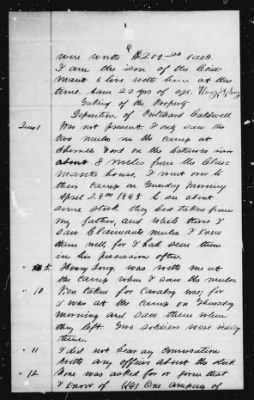 were worth $200.00 each.
I am the son of the Claim-
ant & live with him at this
time. I am 22 yrs of age. Henry Long
Taking of the Property
Deposition of Caldwell
Was not present. I only saw the
two mules in the camp at
Ford on the
about 8 miles from the Clai-
mants house. I went over to
their camp on Tuesday Morning
April 28th 1863 to see about
some stock they had taken from
my father, and while there I
saw Claimants mules. I knew
them well, for I had seen them
in his possession often.
" 5. Henry Long, was with me at
the camp when I saw the mules
" 10 Was taken for Cavalry use; for
I was at the camp on Thursday
morning and saw them when
they left. Two soldiers were riding
them.
" 11 I did not hear any conversation
with any officer about the stock
" 12 None was asked for or given that
I know of (14) One camping of